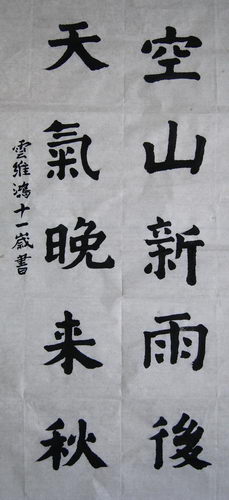 空山新雨後
天氣晚来秋
雲維鴻十一歲書